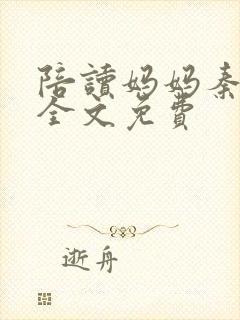 陪讀媽媽秦
全文免費
逝舟